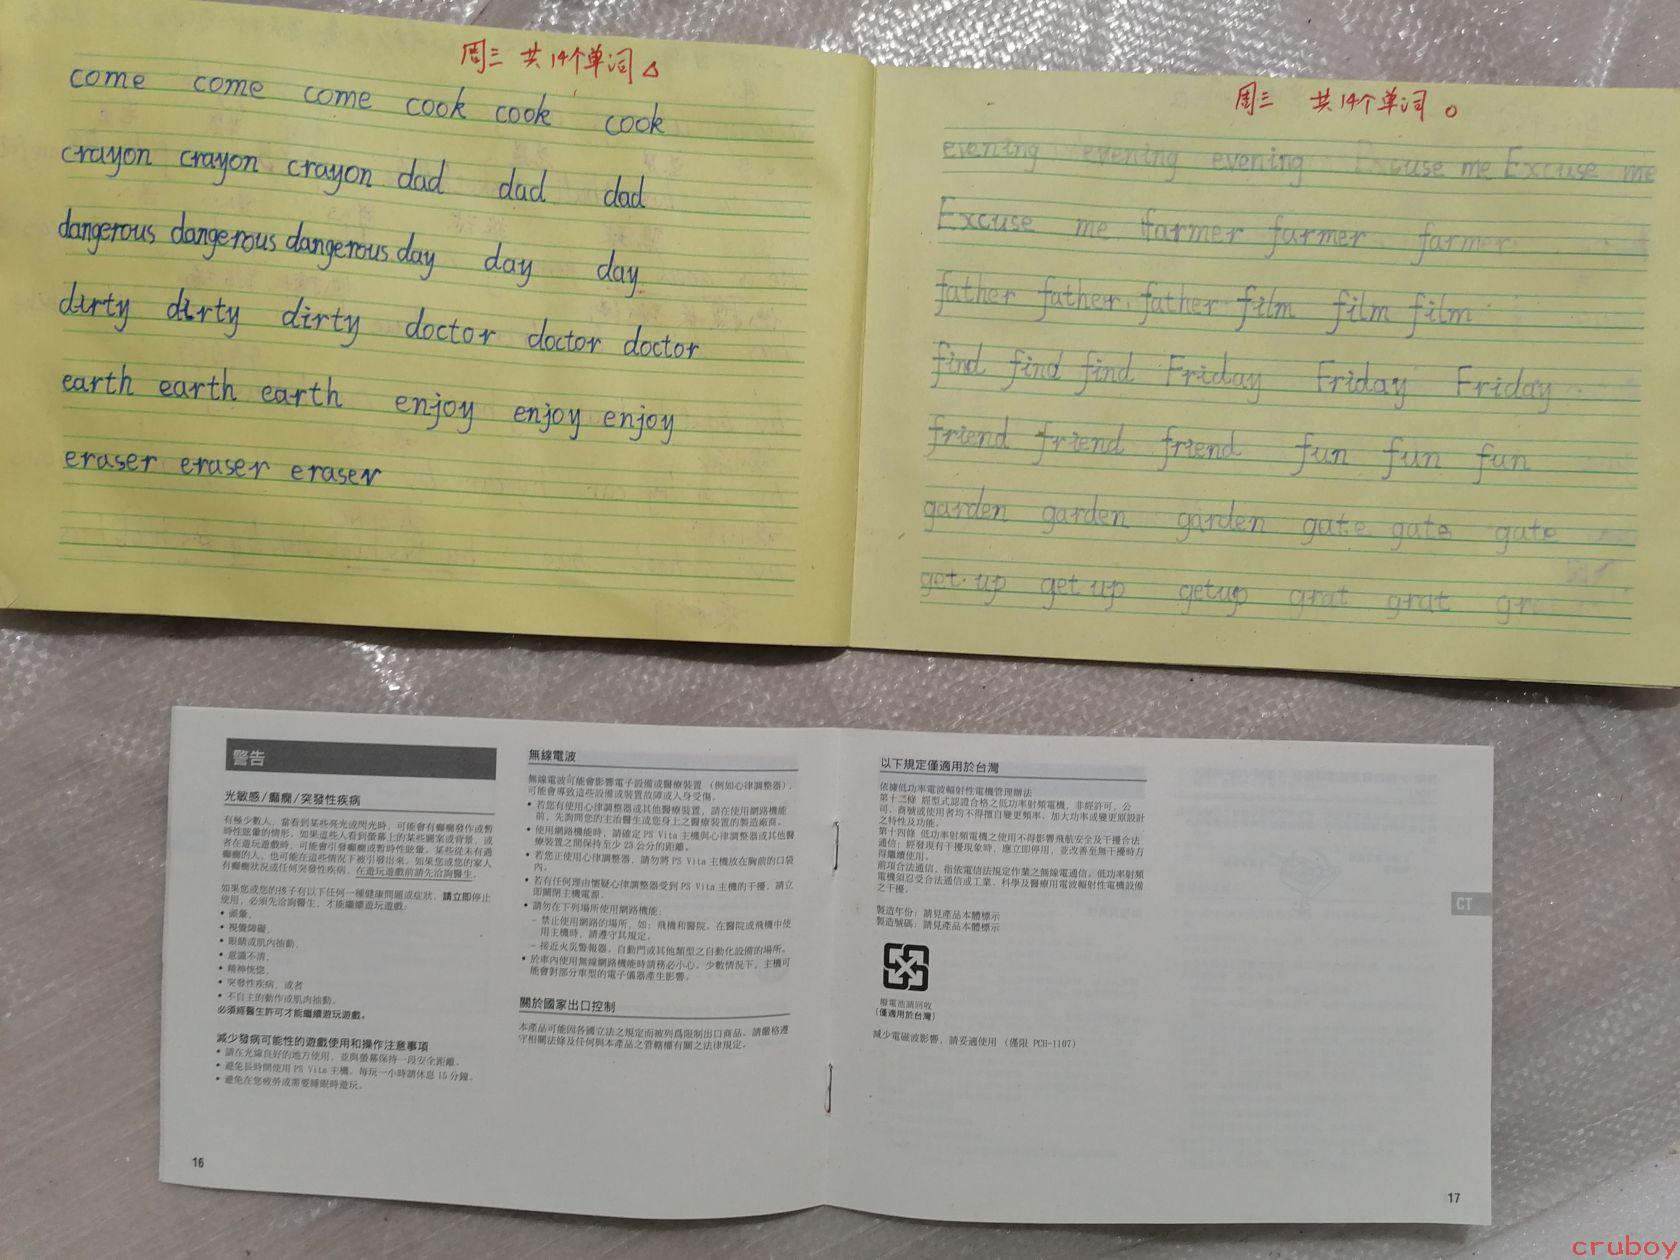 周三 共14个单词 △
come come come cook cook cook
crayon crayon crayon dad dad dad
dangerous dangerous dangerous day day day
dirty dirty dirty doctor doctor doctor
earth earth earth enjoy enjoy enjoy
eraser eraser eraser
周三 共14个单词 ○
evening evening evening Excuse me Excuse me
Excuse me farmer farmer farmer
father father father film film film
find find find Friday Friday Friday
friend friend friend fun fun fun
garden garden garden gate gate gate
get up get up getup grat grat
警告
光敏感/癲癇/突發性疾病
有極少數人,當看到某些亮光或閃光時,可能會有癲癇發作或暫
時性眩暈的情形。如果這些人看到螢幕上的某些圖案或背景,或
者在遊玩遊戲時,可能會引發癲癇或暫時性眩暈。某些從未有過
癲癇的人,也可能在這些情況下被引發出來。如果您或您的家人
有癲癇狀況或任何突發性疾病,在遊玩遊戲前請先洽詢醫生。
如果您或您的孩子有以下任何一種健康問題或症狀,請立即停止
使用,必須先洽詢醫生,才能繼續遊玩遊戲:
• 頭暈,
• 視覺障礙,
• 眼睛或肌肉抽動,
• 意識不清,
• 精神恍惚,
• 突發性疾病,或者
• 不自主的動作或肌肉抽動。
必須經醫生許可才能繼續遊玩遊戲。
減少發病可能性的遊戲使用和操作注意事項
• 請在光線良好的地方使用,並與螢幕保持一段安全距離。
• 避免長時間使用 PS Vita 主機。每玩一小時請休息 15 分鐘。
• 避免在您疲勞或需要睡眠時遊玩。
16
無線電波
無線電波可能會影響電子設備或醫療裝置 (例如心律調整器),
可能會導致這些設備或裝置故障或人身受傷。
• 若您有使用心律調整器或其他醫療裝置,請在使用網路機能
前,先詢問您的主治醫生或您身上之醫療裝置的製造廠商。
• 使用網路機能時,請確定 PS Vita 主機與心律調整器或其他醫
療裝置之間保持至少 23 公分的距離。
• 若您正使用心律調整器,請勿將 PS Vita 主機放在胸前的口袋
內。
• 若有任何理由懷疑心律調整器受到 PS Vita 主機的干擾,請立
即關閉主機電源。
• 請勿在下列場所使用網路機能:
– 禁止使用網路的場所,如: 飛機和醫院。在醫院或飛機中使
用主機時,請遵守其規定。
– 接近火災警報器、自動門或其他類型之自動化設備的場所。
• 於車內使用無線網路機能時請務必小心。少數情況下,主機可
能會對部分車型的電子儀器產生影響。
關於國家出口控制
本產品可能因各國立法之規定而被列爲限制出口商品。請嚴格遵
守相關法條及任何與本產品之管轄權有關之法律規定。
以下規定僅適用於台灣
依據低功率電波輻射性電機管理辦法
第十二條 經型式認證合格之低功率射頻電機,非經許可,公
司、商號或使用者均不得擅自變更頻率、加大功率或變更原設計
之特性及功能。
第十四條 低功率射頻電機之使用不得影響飛航安全及干擾合法
通信;經發現有干擾現象時,應立即停用,並改善至無干擾時方
得繼續使用。
前項合法通信,指依電信法規定作業之無線電通信。低功率射頻
電機須忍受合法通信或工業、科學及醫療用電波輻射性電機設備
之干擾。
製造年份: 請見產品本體標示
製造號碼: 請見產品本體標示
廢電池請回收
(僅適用於台灣)
減少電磁波影響,請妥適使用 (僅限 PCH-1107)
CT
17
cruboy